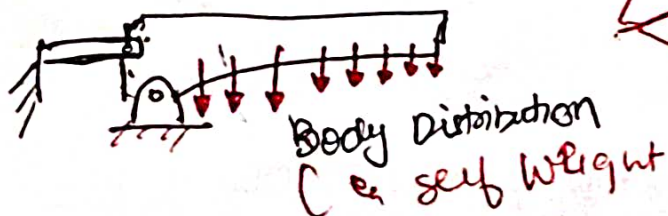 Body Distribution
( self Weight